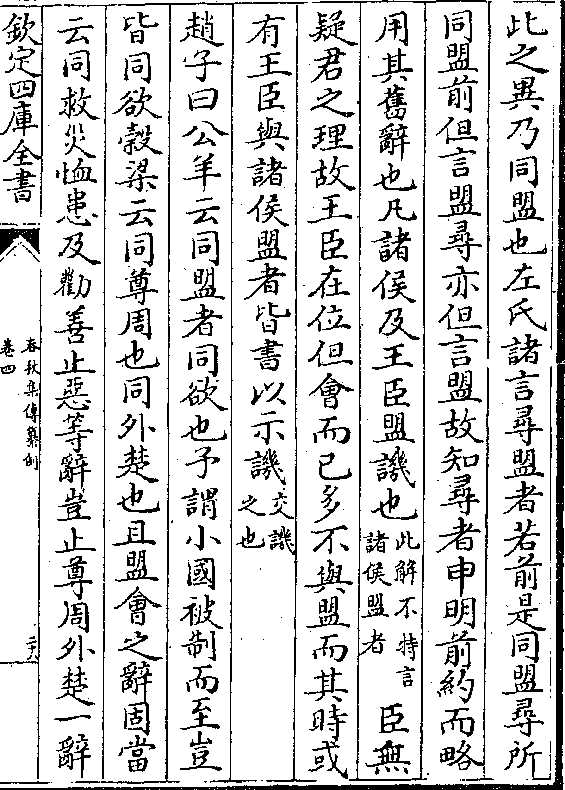 此之異乃同盟也左氏諸言尋盟者若前是同盟尋所
同盟前但言盟尋亦但言盟故知尋者申明前約而略
用其舊辭也凡諸侯及王臣盟譏也此解不特言諸侯盟者臣無
疑君之理故王臣在位但會而已多不與盟而其時或
有王臣與諸侯盟者皆書以示譏交譏之也
趙子曰公羊云同盟者同欲也予謂小國被制而至豈
皆同欲穀梁云同尊周也同外楚也且盟會之辭固當
云同救災恤患及勸善止惡等辭豈止尊周外楚一辭
欽定四庫全書
春秋集傳纂例
卷四